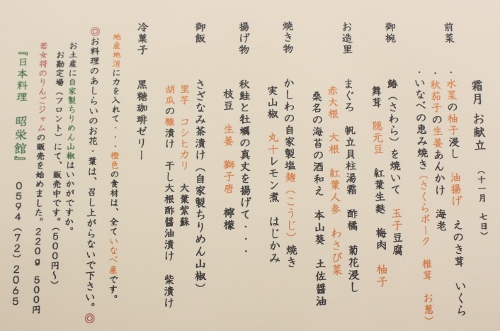 霜月 お献立 （十一月 七日）
前菜
・水菜の柚子浸し 油揚げ えのき茸 いくら
・秋茄子の生姜あんかけ 海老
・いなべの恵み焼き（さくらポーク 椎茸 お葱）
御椀
鰆（さわら）を焼いて 玉子豆腐
舞茸 隠元豆 紅葉生麩 梅肉 柚子
お造里
まぐろ 帆立貝柱湯霜 酢橘 菊花浸し
赤大根 大根 紅葉人参 わさび菜
桑名の海苔の酒和え 本山葵 土佐醤油
焼き物
かしわの自家製塩麹（こうじ）焼き
実山椒 丸十レモン煮 はじかみ
揚げ物
秋鮭と牡蠣の真丈を揚げて・・・
枝豆 生姜 獅子唐 檸檬
御飯
さざなみ茶漬け（自家製ちりめん山椒）
里芋 コシヒカリ 大葉紫蘇
胡瓜の糠漬け 干し大根酢醤油漬け 柴漬け
冷菓子
黒糖珈琲ゼリー
地産地消に力を入れて・・・橙色の食材は、全ていなべ産です。
◎お料理のあしらいのお花・葉は、召し上がらないで下さい。◎
お土産に自家製ちりめん山椒はいかがですか。
お勘定場（フロント）にて、販売中です。（５００円～）
若女将のりんごジャムの販売を始めました。２２０ｇ ５００円
『日本料理 昭栄館』 ０５９４（７２）２０６５